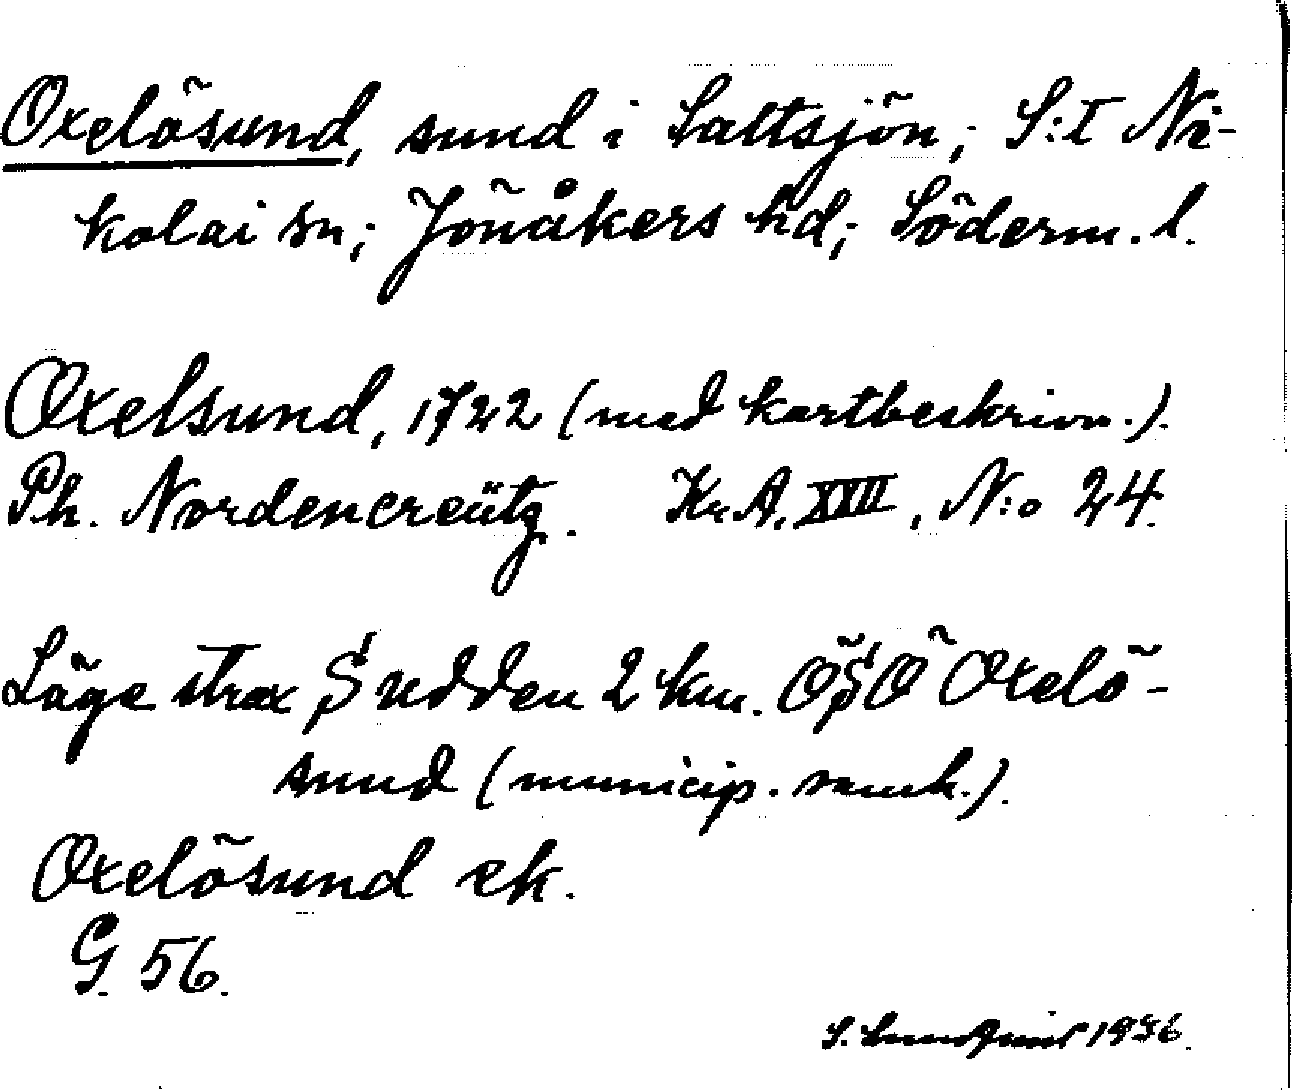 Oxelösund, sund i Saltsjön; S:t Ni-
kolai sn; Jönåkers hd; Söderm. l.
Oxelsund, 1722 (med kartbeskrivn.).
Ph. Nordencreütz. Kr.A. XXII, N:o 24.
Läge strax S udden 2 km. ÖSÖ Oxelö-
sund (municip. samh.).
Oxelösund ek.
G 56.
S. Lundquist 1936.